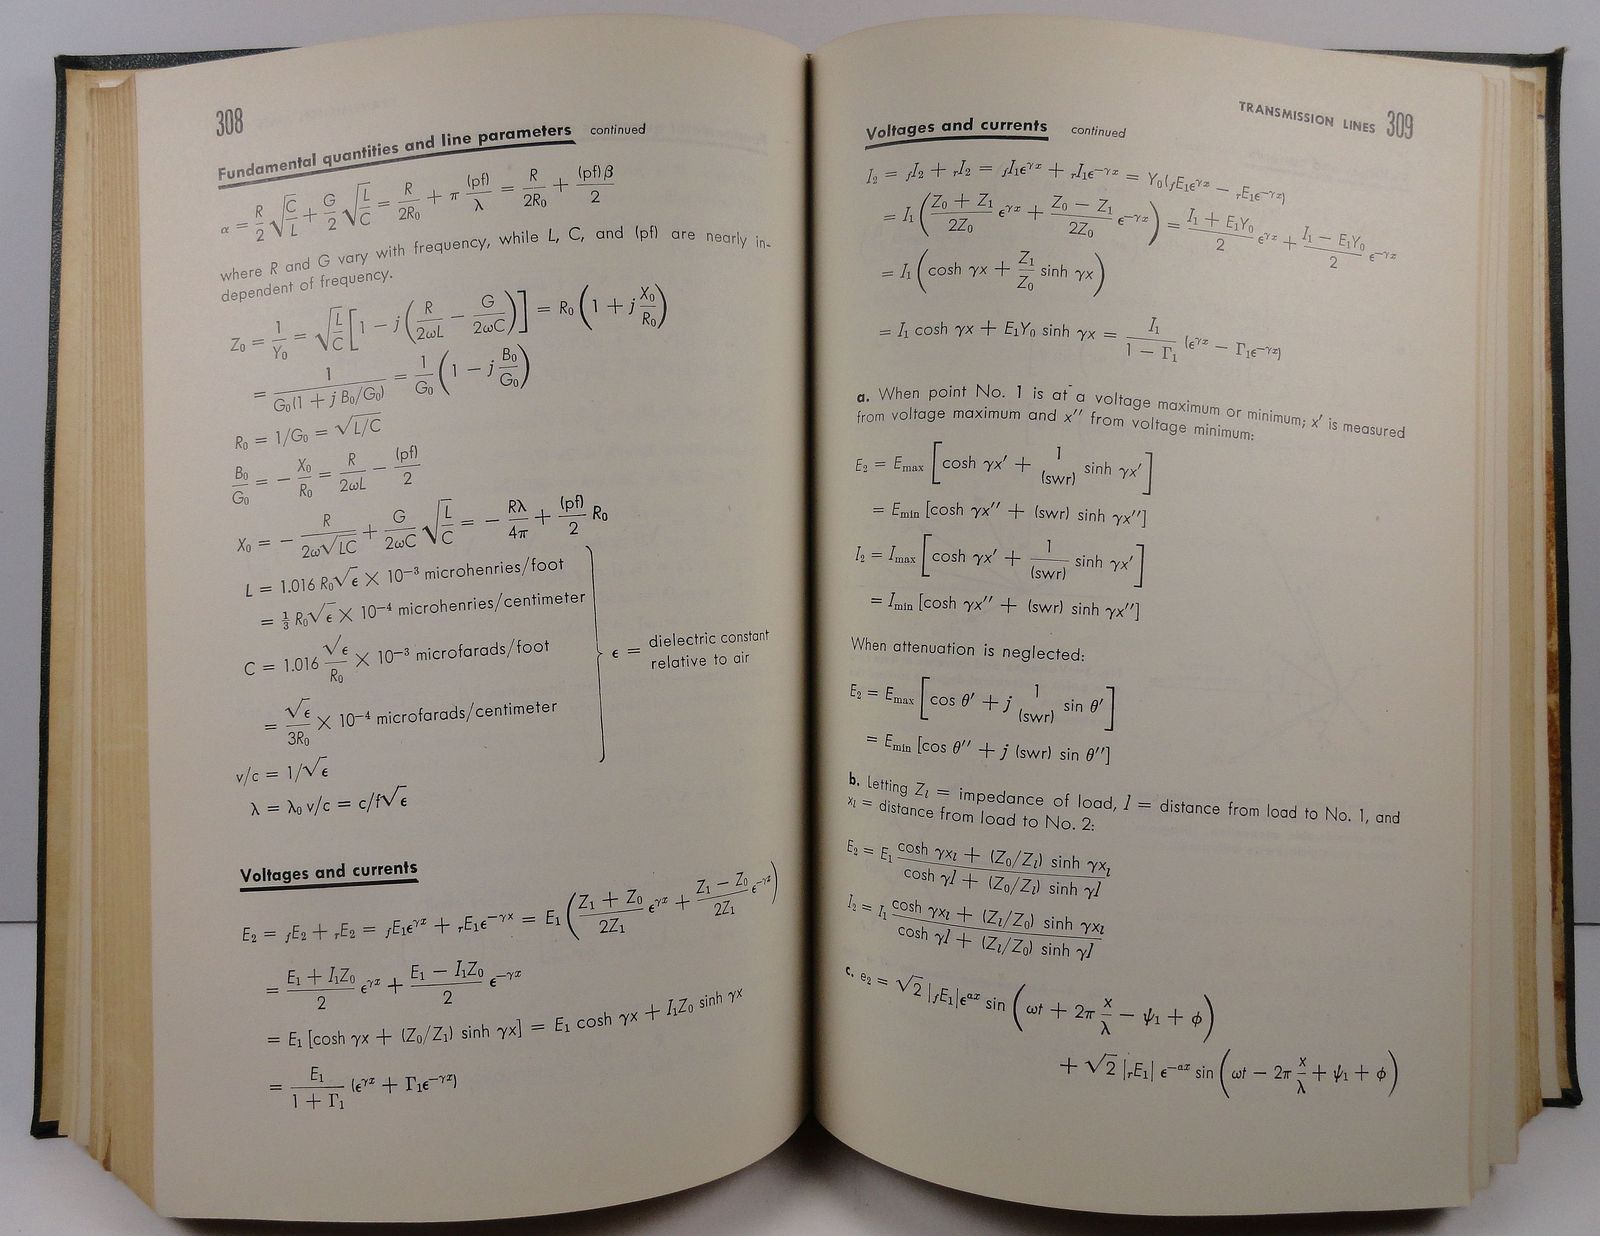 308
Fundamental quantities and line parameters continued
α = R/2 √(C/L) + G/2 √(L/C) = R/2R₀ + π (pf)/λ = R/2R₀ + (pf)β/2
where R and G vary with frequency, while L, C, and (pf) are nearly in-
dependent of frequency.
Z₀ = 1/Y₀ = √(L/C) [1 − j(R/2ωL − G/2ωC)] = R₀ (1 + j X₀/R₀)
= 1/G₀(1 + j B₀/G₀) = 1/G₀ (1 − j B₀/G₀)
R₀ = 1/G₀ = √L/C
B₀/G₀ = − X₀/R₀ = R/2ωL − (pf)/2
X₀ = − R/2ω√LC + G/2ωC √(L/C) = − Rλ/4π + (pf)/2 R₀
L = 1.016 R₀√ϵ × 10⁻³ microhenries/foot
= ⅓ R₀√ϵ × 10⁻⁴ microhenries/centimeter
C = 1.016 √ϵ/R₀ × 10⁻³ microfarads/foot
= √ϵ/3R₀ × 10⁻⁴ microfarads/centimeter
ϵ = dielectric constant
relative to air
v/c = 1/√ϵ
λ = λ₀ v/c = c/f√ϵ
Voltages and currents
E₂ = fE₂ + rE₂ = fE₁ϵ^γx + rE₁ϵ^−γx = E₁ ((Z₁ + Z₀)/2Z₁ ϵ^γx + (Z₁ − Z₀)/2Z₁ ϵ^−γx)
= (E₁ + I₁Z₀)/2 ϵ^γx + (E₁ − I₁Z₀)/2 ϵ^−γx
= E₁ [cosh γx + (Z₀/Z₁) sinh γx] = E₁ cosh γx + I₁Z₀ sinh γx
= E₁/(1 + Γ₁) (ϵ^γx + Γ₁ϵ^−γx)
TRANSMISSION LINES 309
Voltages and currents continued
I₂ = fI₂ + rI₂ = fI₁ϵ^γx + rI₁ϵ^−γx = Y₀(fE₁ϵ^γx − rE₁ϵ^−γx)
= I₁ ((Z₀ + Z₁)/2Z₀ ϵ^γx + (Z₀ − Z₁)/2Z₀ ϵ^−γx) = (I₁ + E₁Y₀)/2 ϵ^γx + (I₁ − E₁Y₀)/2 ϵ^−γx
= I₁ (cosh γx + Z₁/Z₀ sinh γx)
= I₁ cosh γx + E₁Y₀ sinh γx = I₁/(1 − Γ₁) (ϵ^γx − Γ₁ϵ^−γx)
a. When point No. 1 is at a voltage maximum or minimum; x′ is measured
from voltage maximum and x″ from voltage minimum:
E₂ = Emax [cosh γx′ + 1/(swr) sinh γx′]
= Emin [cosh γx″ + (swr) sinh γx″]
I₂ = Imax [cosh γx′ + 1/(swr) sinh γx′]
= Imin [cosh γx″ + (swr) sinh γx″]
When attenuation is neglected:
E₂ = Emax [cos θ′ + j 1/(swr) sin θ′]
= Emin [cos θ″ + j (swr) sin θ″]
b. Letting Zl = impedance of load, l = distance from load to No. 1, and
xl = distance from load to No. 2:
E₂ = E₁ (cosh γxl + (Z₀/Zl) sinh γxl)/(cosh γl + (Z₀/Zl) sinh γl)
I₂ = I₁ (cosh γxl + (Zl/Z₀) sinh γxl)/(cosh γl + (Zl/Z₀) sinh γl)
c. e₂ = √2 |fE₁|ϵ^αx sin (ωt + 2π x/λ − ψ₁ + ϕ)
+ √2 |rE₁| ϵ^−αx sin (ωt − 2π x/λ + ψ₁ + ϕ)